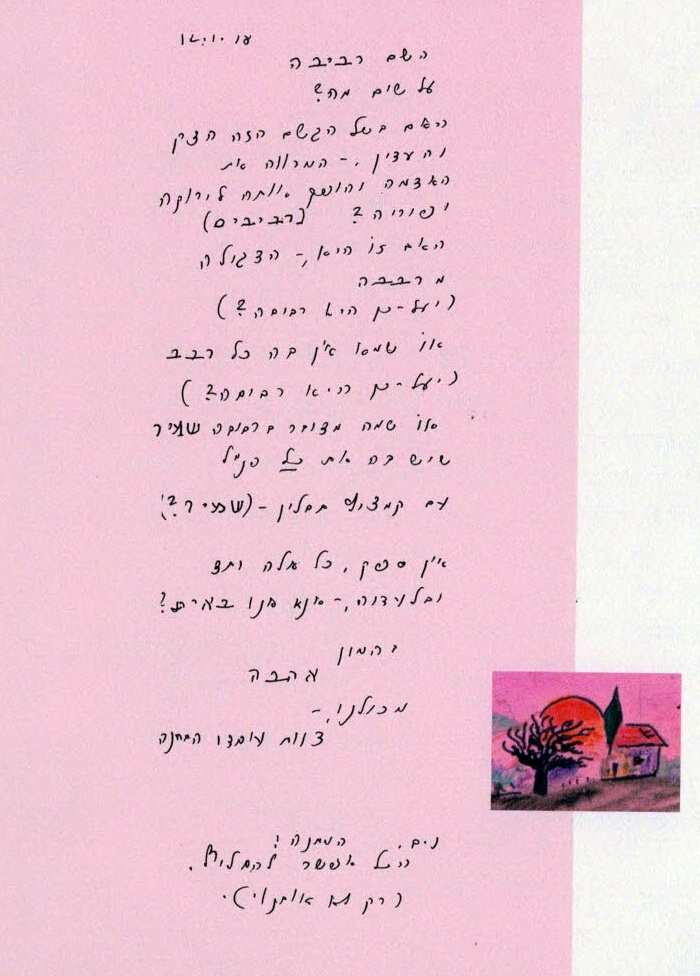 השם רביבה
על שום מה?
האם בשל הגשם הזה הדק
והעדין,- המרווה את
האדמה והופך אותה לירוקה
ופוריה? (רביבים)
האם זו היא,- הצגולה
מרבבה
(ועל-כן היא רבובה?)
או שמא אין בה כל רבב
(ועל-כן היא רבובה?)
או שמה מצוזר ברבובה שעיר
שיש בה את כל הנ"ל
עם קמצוץ תבלין -(שעיר?)
אין ספק, כל אלה ועוד
ובלעדיה,- אנא אנו באים?
בהמון
אהבה
מכולנו,-
צוות עובדי התחנה
נ.ב. המתנה!
הכל אפשר להחליף.
(רק לא אותנו).